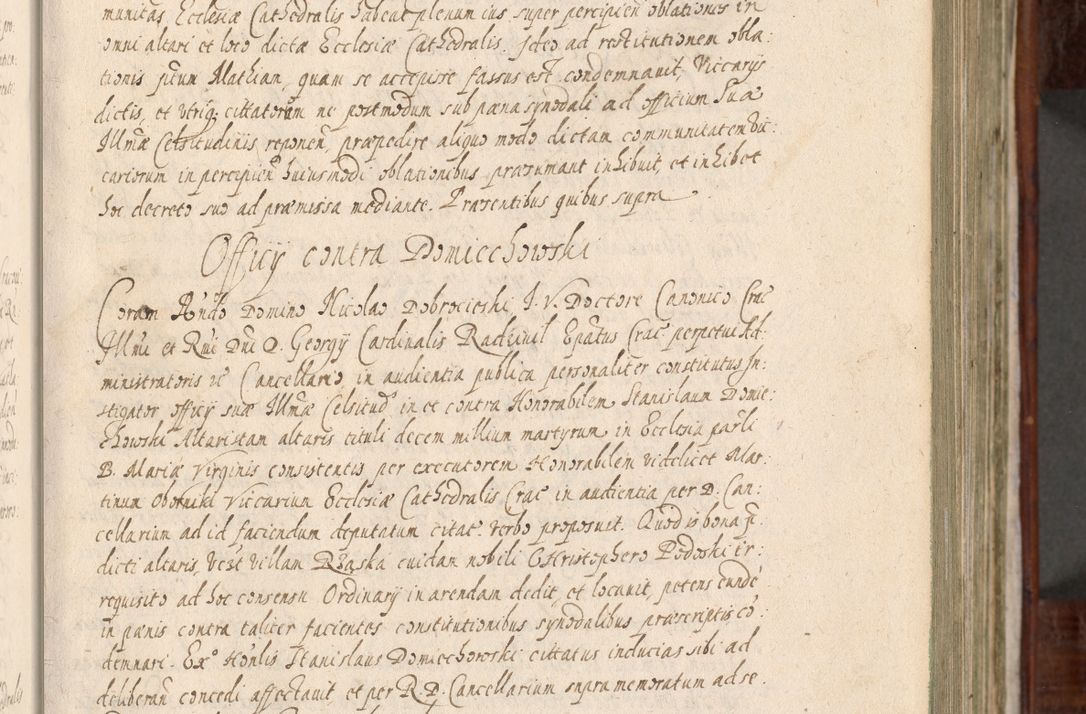 munitas Ecclesiæ Cathedralis habeat plenum ius super percipien oblationes in
omni altari et loco dictæ Ecclesiæ Cathedralis. Ideo ad restitutionem obla:
tionis ptum Mathian, quam se accepisse fassus est condemnauit, Viccarijs
dictis, et vtriq; cittatorum ne postmodum sub pæna synodali ad officium Suæ
Illmæ Celsitudinis reponen, præpedire aliquo modo dictam communitatem vic:
cariorum in percipien huiusmodi oblationibus præsumant inhibuit, et inhibet
hoc decreto suo ad præmissa mediante. Præsentibus quibus supra
Officij contra Domiechowski
Coram Rndo Domino Nicolao Dobrocieski I. V. Doctore Canonico Crac
Illmi et Rmi Dni D. Georgij Cardinalis Radziuil Epatus Crac perpetui Ad:
ministratoris &c Cancellario, in audientia publica personaliter constitutus In:
stigator officij suæ Illmæ Celsitud in et contra Honorabilem Stanislaum Domie:
chowski Altaristam altaris tituli decem millium martyrum in Ecclesia parli
B. Mariæ Virginis consistentis per executorem Honorabilem videlicet Mar:
tinum Obornik Viccarium Ecclesiæ Cathedralis Crac in audientia per D. Can:
cellarium ad id faciendum deputatum citat. verbo proposuit. Quod is bona p
dicti altaris, vest villam Rzaska cuidam nobili Christophero Podoski ir:
requisito ad hoc consensu Ordinarij in arendam dedit, et locauit, petens eundē
in pænis contra taliter facientes constitutionibus synodalibus præscriptis cō:
demnari. Exo Honlis Stanislaus Domiechowski cittatus inducias sibi ad
deliberan concedi affectauit et per R. D. Cancellarium supra memoratum ad se.